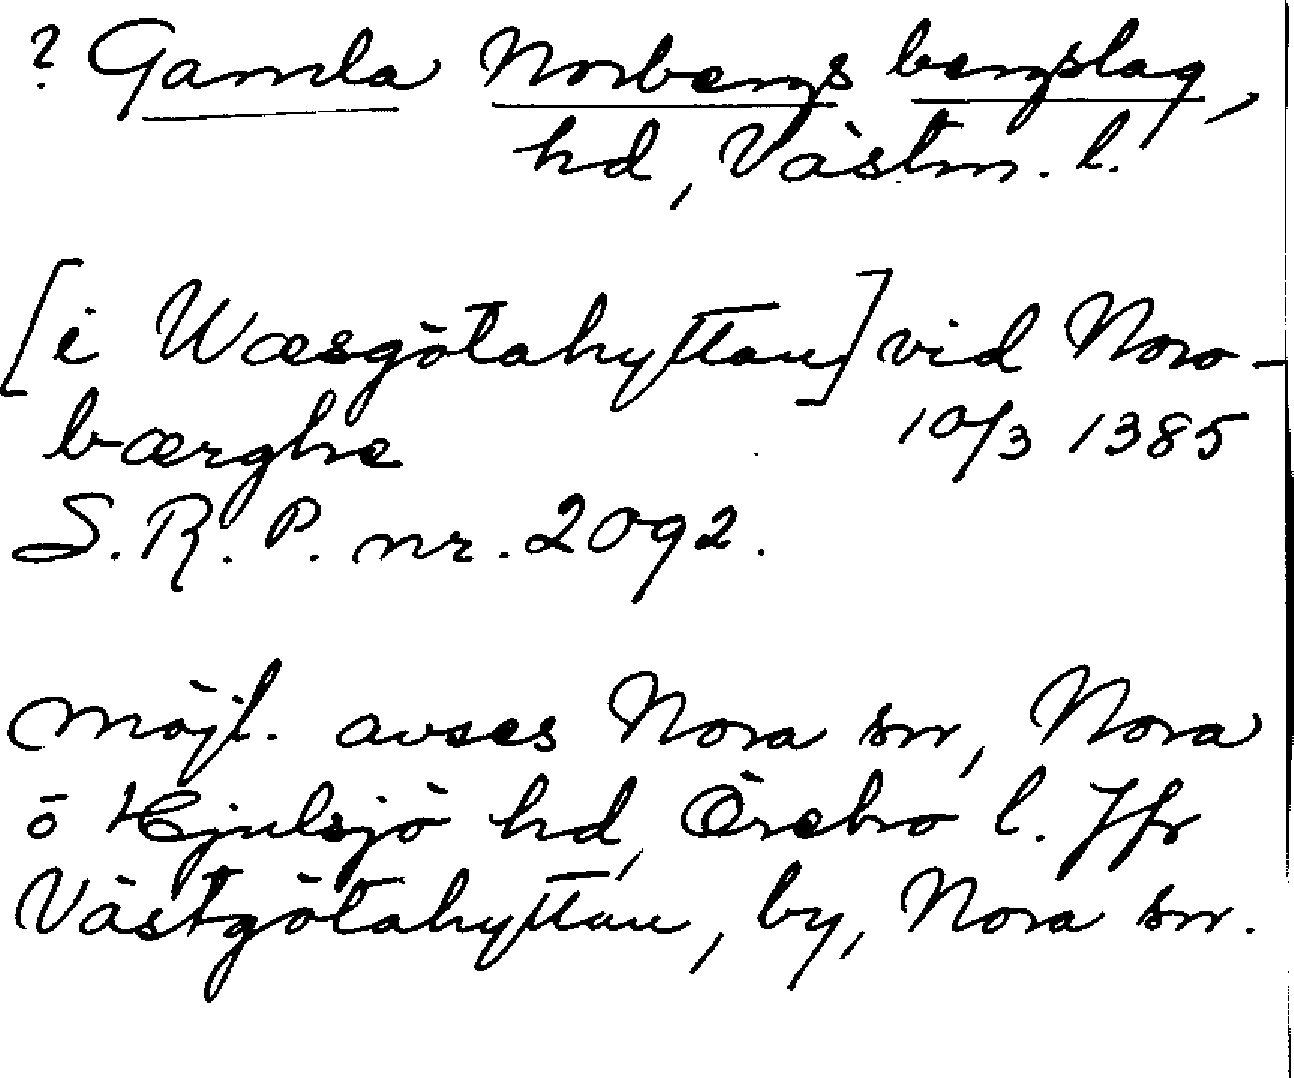 ? Gamla Norbergs bergslag,
hd, Västm. l.
[i Wæsgötahyttan] vid Noro-
bærghe 10/3 1385
S.R.P. nr. 2092.
möjl. avses Nora sn, Nora
o Hjulsjö hd, Örebro l. Jfr
Västgötahyttan, by, Nora sn.